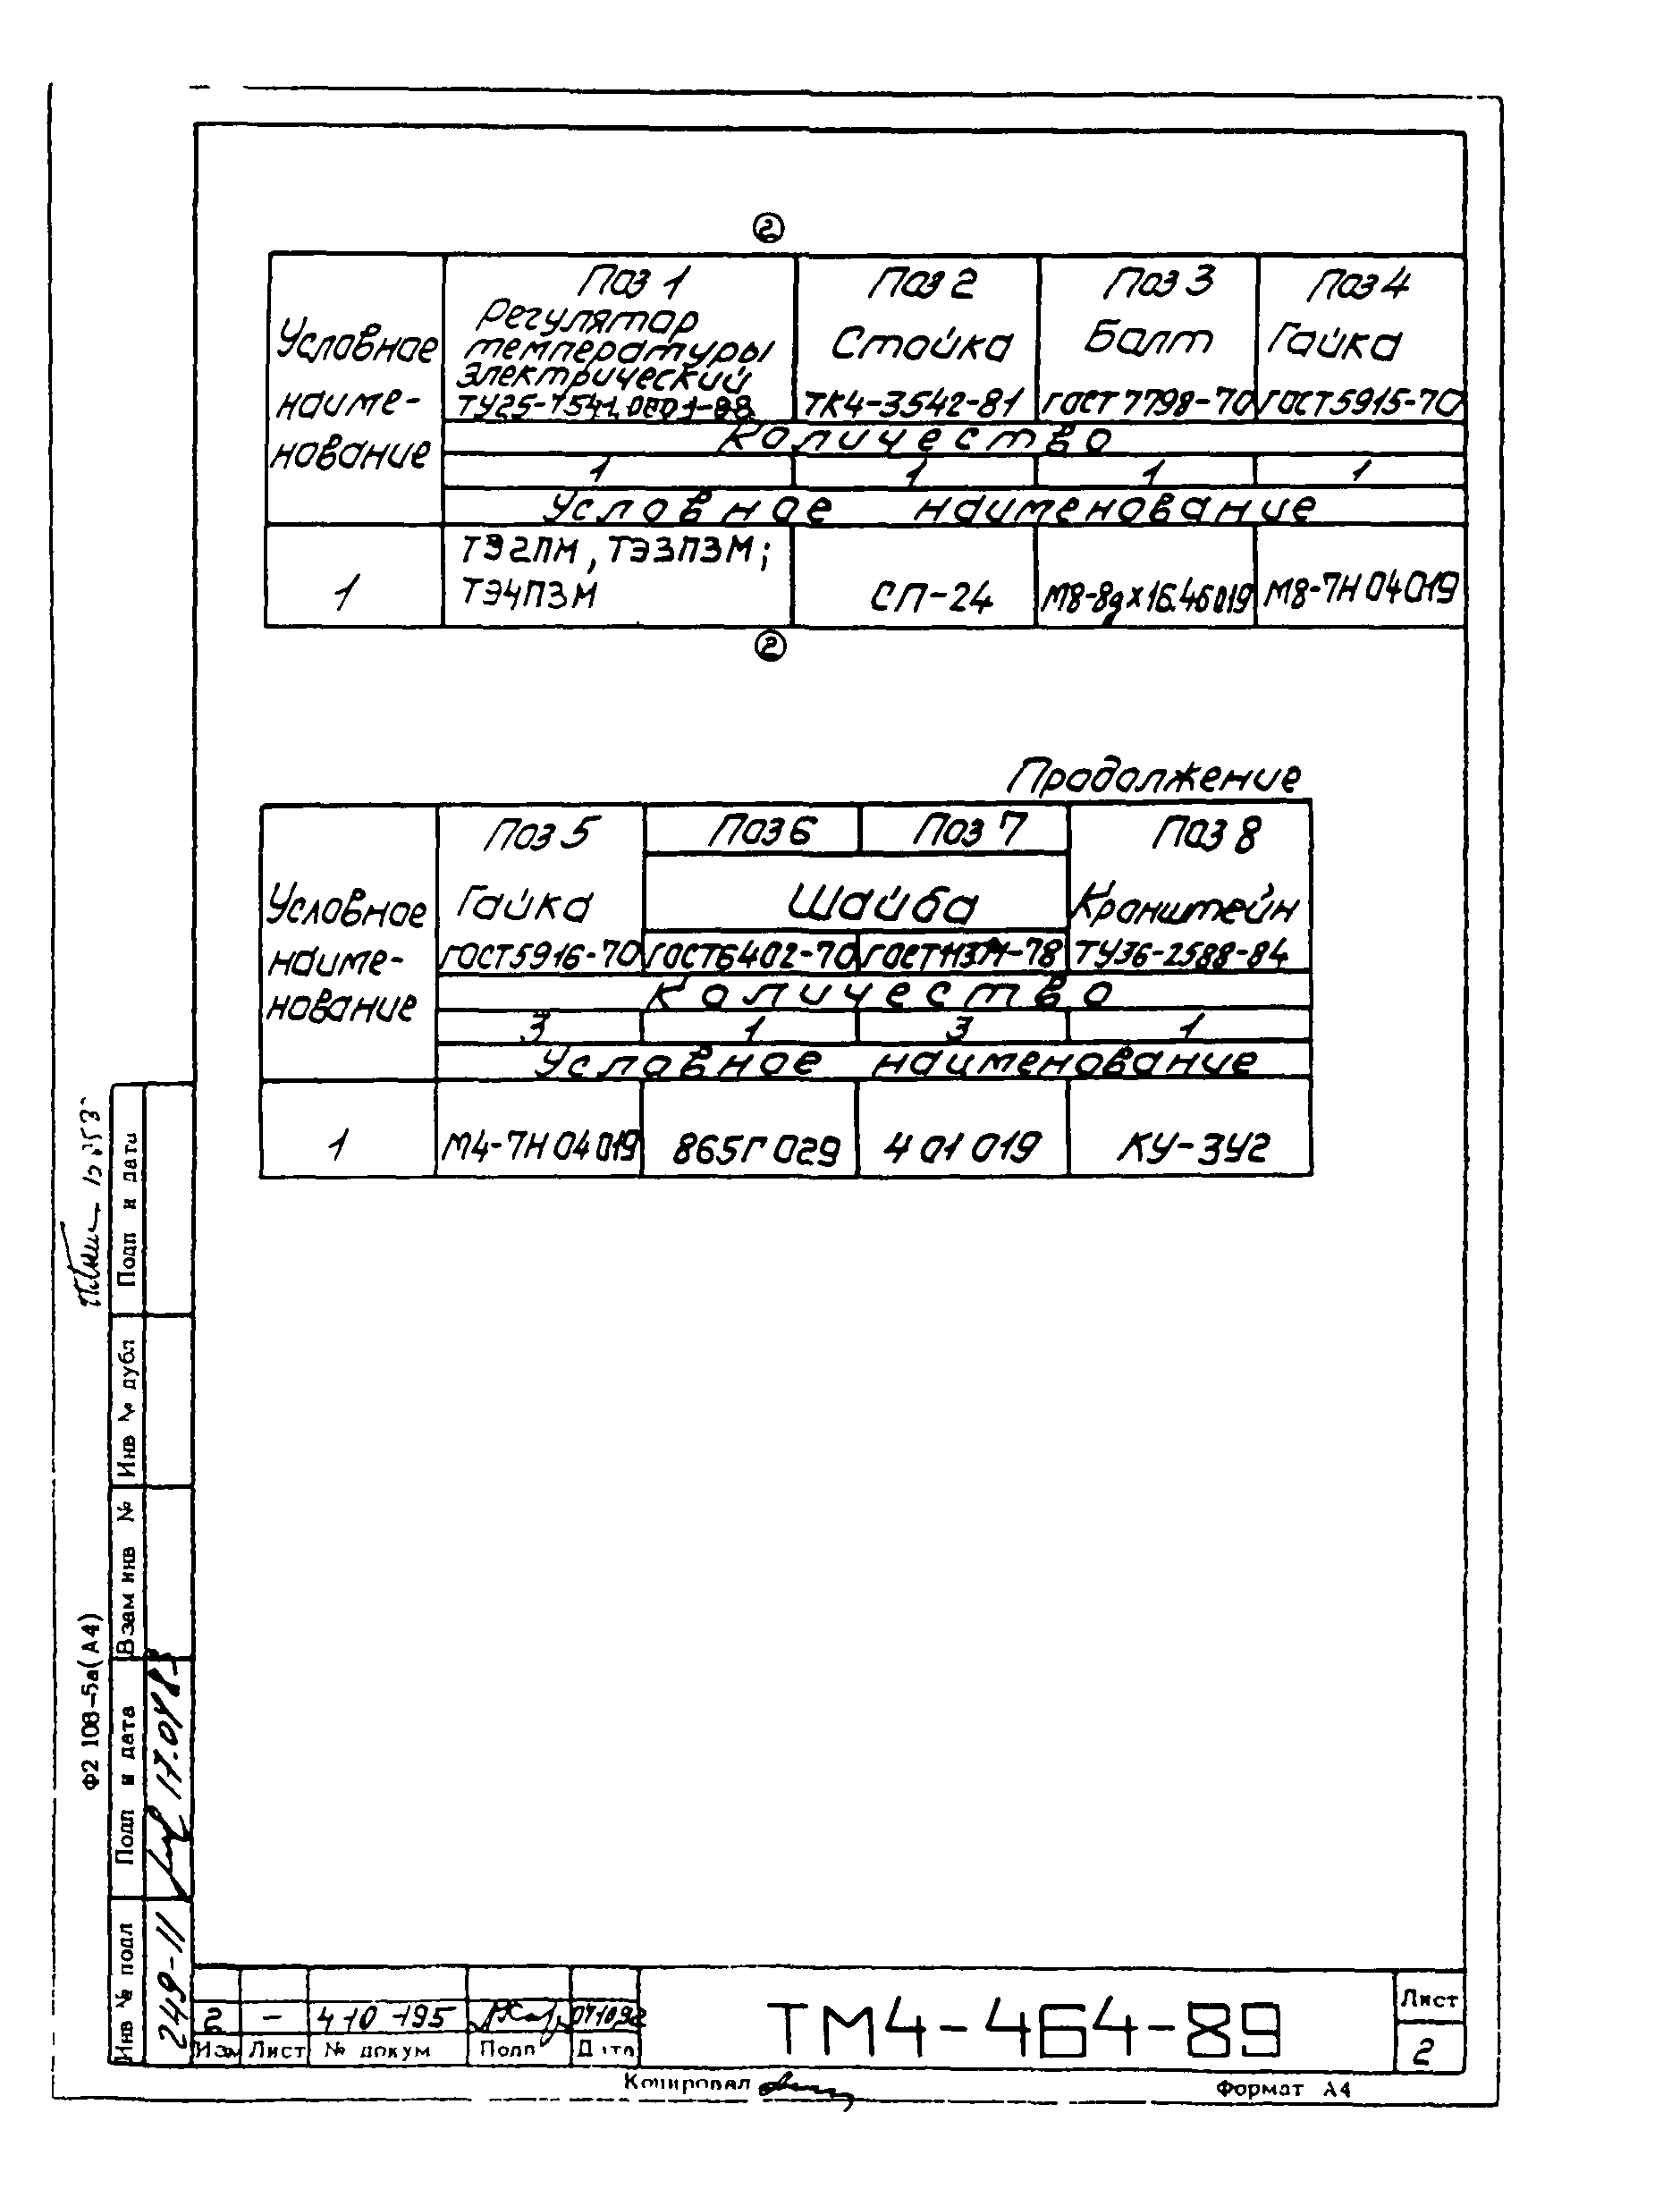 ②
Поз 1 Поз 2 Поз 3 Поз 4
Условное наиме-нование
Регулятор температуры электрический
Стойка Болт Гайка
ТК4-3542-81 ГОСТ 7798-70 ГОСТ 5915-70
Количество
1 1 1 1
Условное наименование
1
ТЭ2ПМ, ТЭ3П3М;
ТЭ4П3М
СП-24 М8-8gх16.46019 М8-7Н 04 019
②
Продолжение
Поз 5 Поз 6 Поз 7 Поз 8
Условное наиме-нование
Гайка Шайба Кронштейн
ГОСТ 5916-70 ГОСТ 6402-70 ГОСТ 11371-78 ТУ36-2588-84
Количество
3 1 3 1
Условное наименование
1 М4-7Н 04 019 865Г 029 4 01 019 КУ-3У2
Подп и дата
Инв № дубл
Взам инв №
Подп и дата
Инв № подл
249-11
Ф2 108-5а(А4)
2 - 4-10-195
Изм Лист № докум Подп Дата
ТМ4-464-89
Лист
2
Копировал
Формат А4